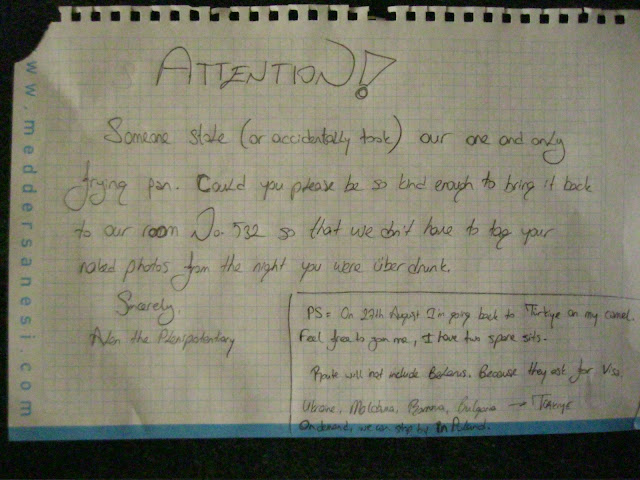 ATTENTION!
Someone stole (or accidentally took) our one and only
frying pan. Could you please be so kind enough to bring it back
to our room No. 532 so that we don't have to tag your
naked photos from the night you were überdrunk.
Sincerely.
the Plenipotentary
PS = On 27th August I'm going back to Türkiye on my camel.
Feel free to join me, I have two spare sits.
Route will not include Belarus. Because they ask for Visa.
Ukraine, Moldova, Romania, Bulgaria → Türkiye
On demand, we can stop by in Poland.
www.meddersanesi.com